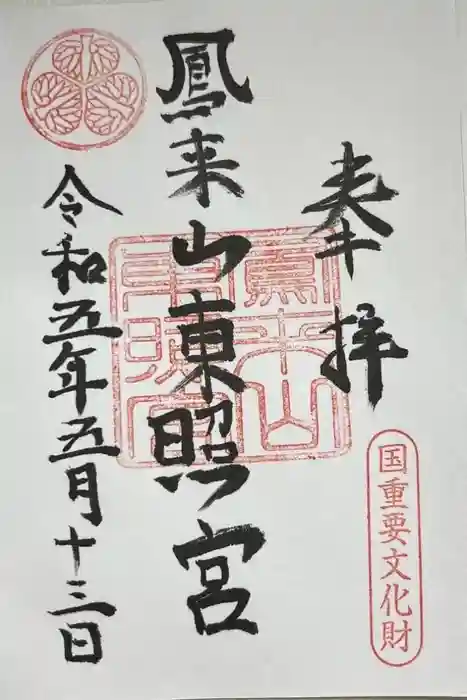 奉拝
国重要文化財
鳳来山東照宮
鳳来山東照宮
令和五年五月十三日